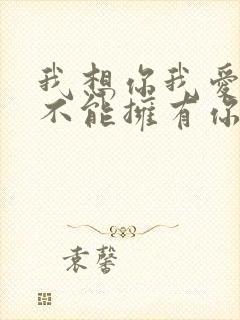 我想你我愛
不能擁有你
袁馨